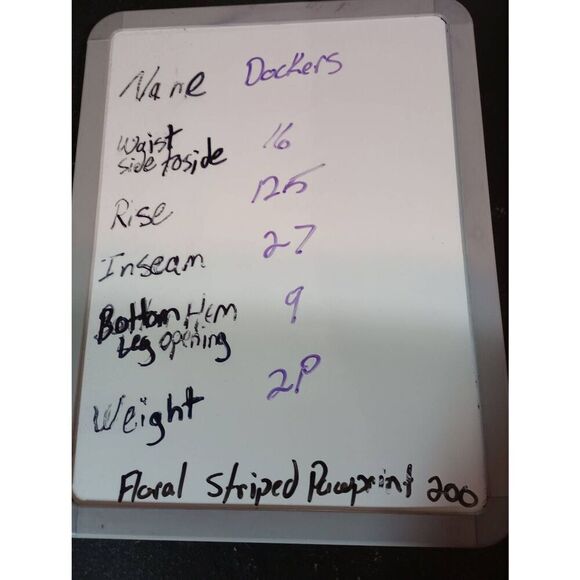 Name Dockers
Waist
side to side 16
Rise 12.5
Inseam 27
Bottom Hem 9
Leg opening
Weight 2P
Floral Striped Pawprint 200